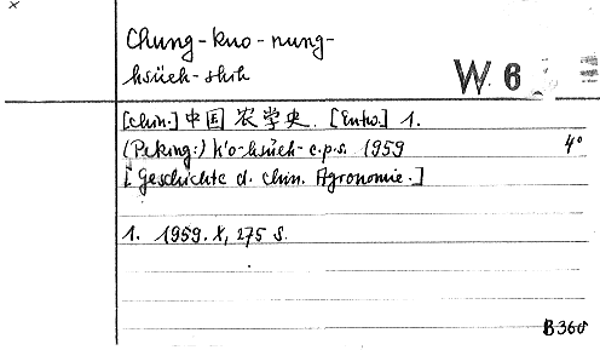 ×
Chung-kuo-nung-
hsüeh-shih
W. 6
[chin.] 中国 农学史. [Entw.] 1.
(Peking:) K'o-hsüeh-c.p.s. 1959 4°
[Geschichte d. chin. Agronomie.]
1. 1959. X, 275 S.
B 360